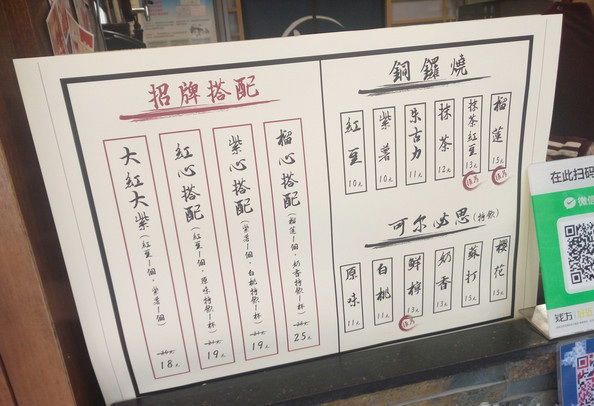 招牌搭配
大紅大紫(紅豆1個,紫薯1個)
18元
紅心搭配(紅豆1個,原味特飲1杯)
19元
紫心搭配(紫薯1個,白桃特飲1杯)
19元
榴心搭配(榴蓮1個,奶香特飲1杯)
25元
銅鑼燒
紅豆 10元
紫薯 10元
朱古力 11元
抹茶 12元
抹茶紅豆 13元
榴蓮 15元
可尔必思(特飲)
原味 11元
白桃 11元
鮮檸 13元
奶香 13元
蘇打 15元
櫻花 15元
在此扫码
微信